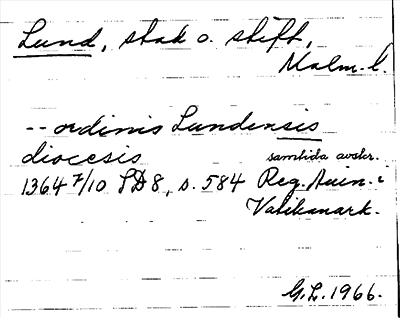 Lund, stad o. stift,
Malm. l.
-- ordinis Lundensis
diocesis samtida avskr.
1364 7/10 SD8, s. 584 Reg. Avin. i
Vatikanark.
G.L. 1966.